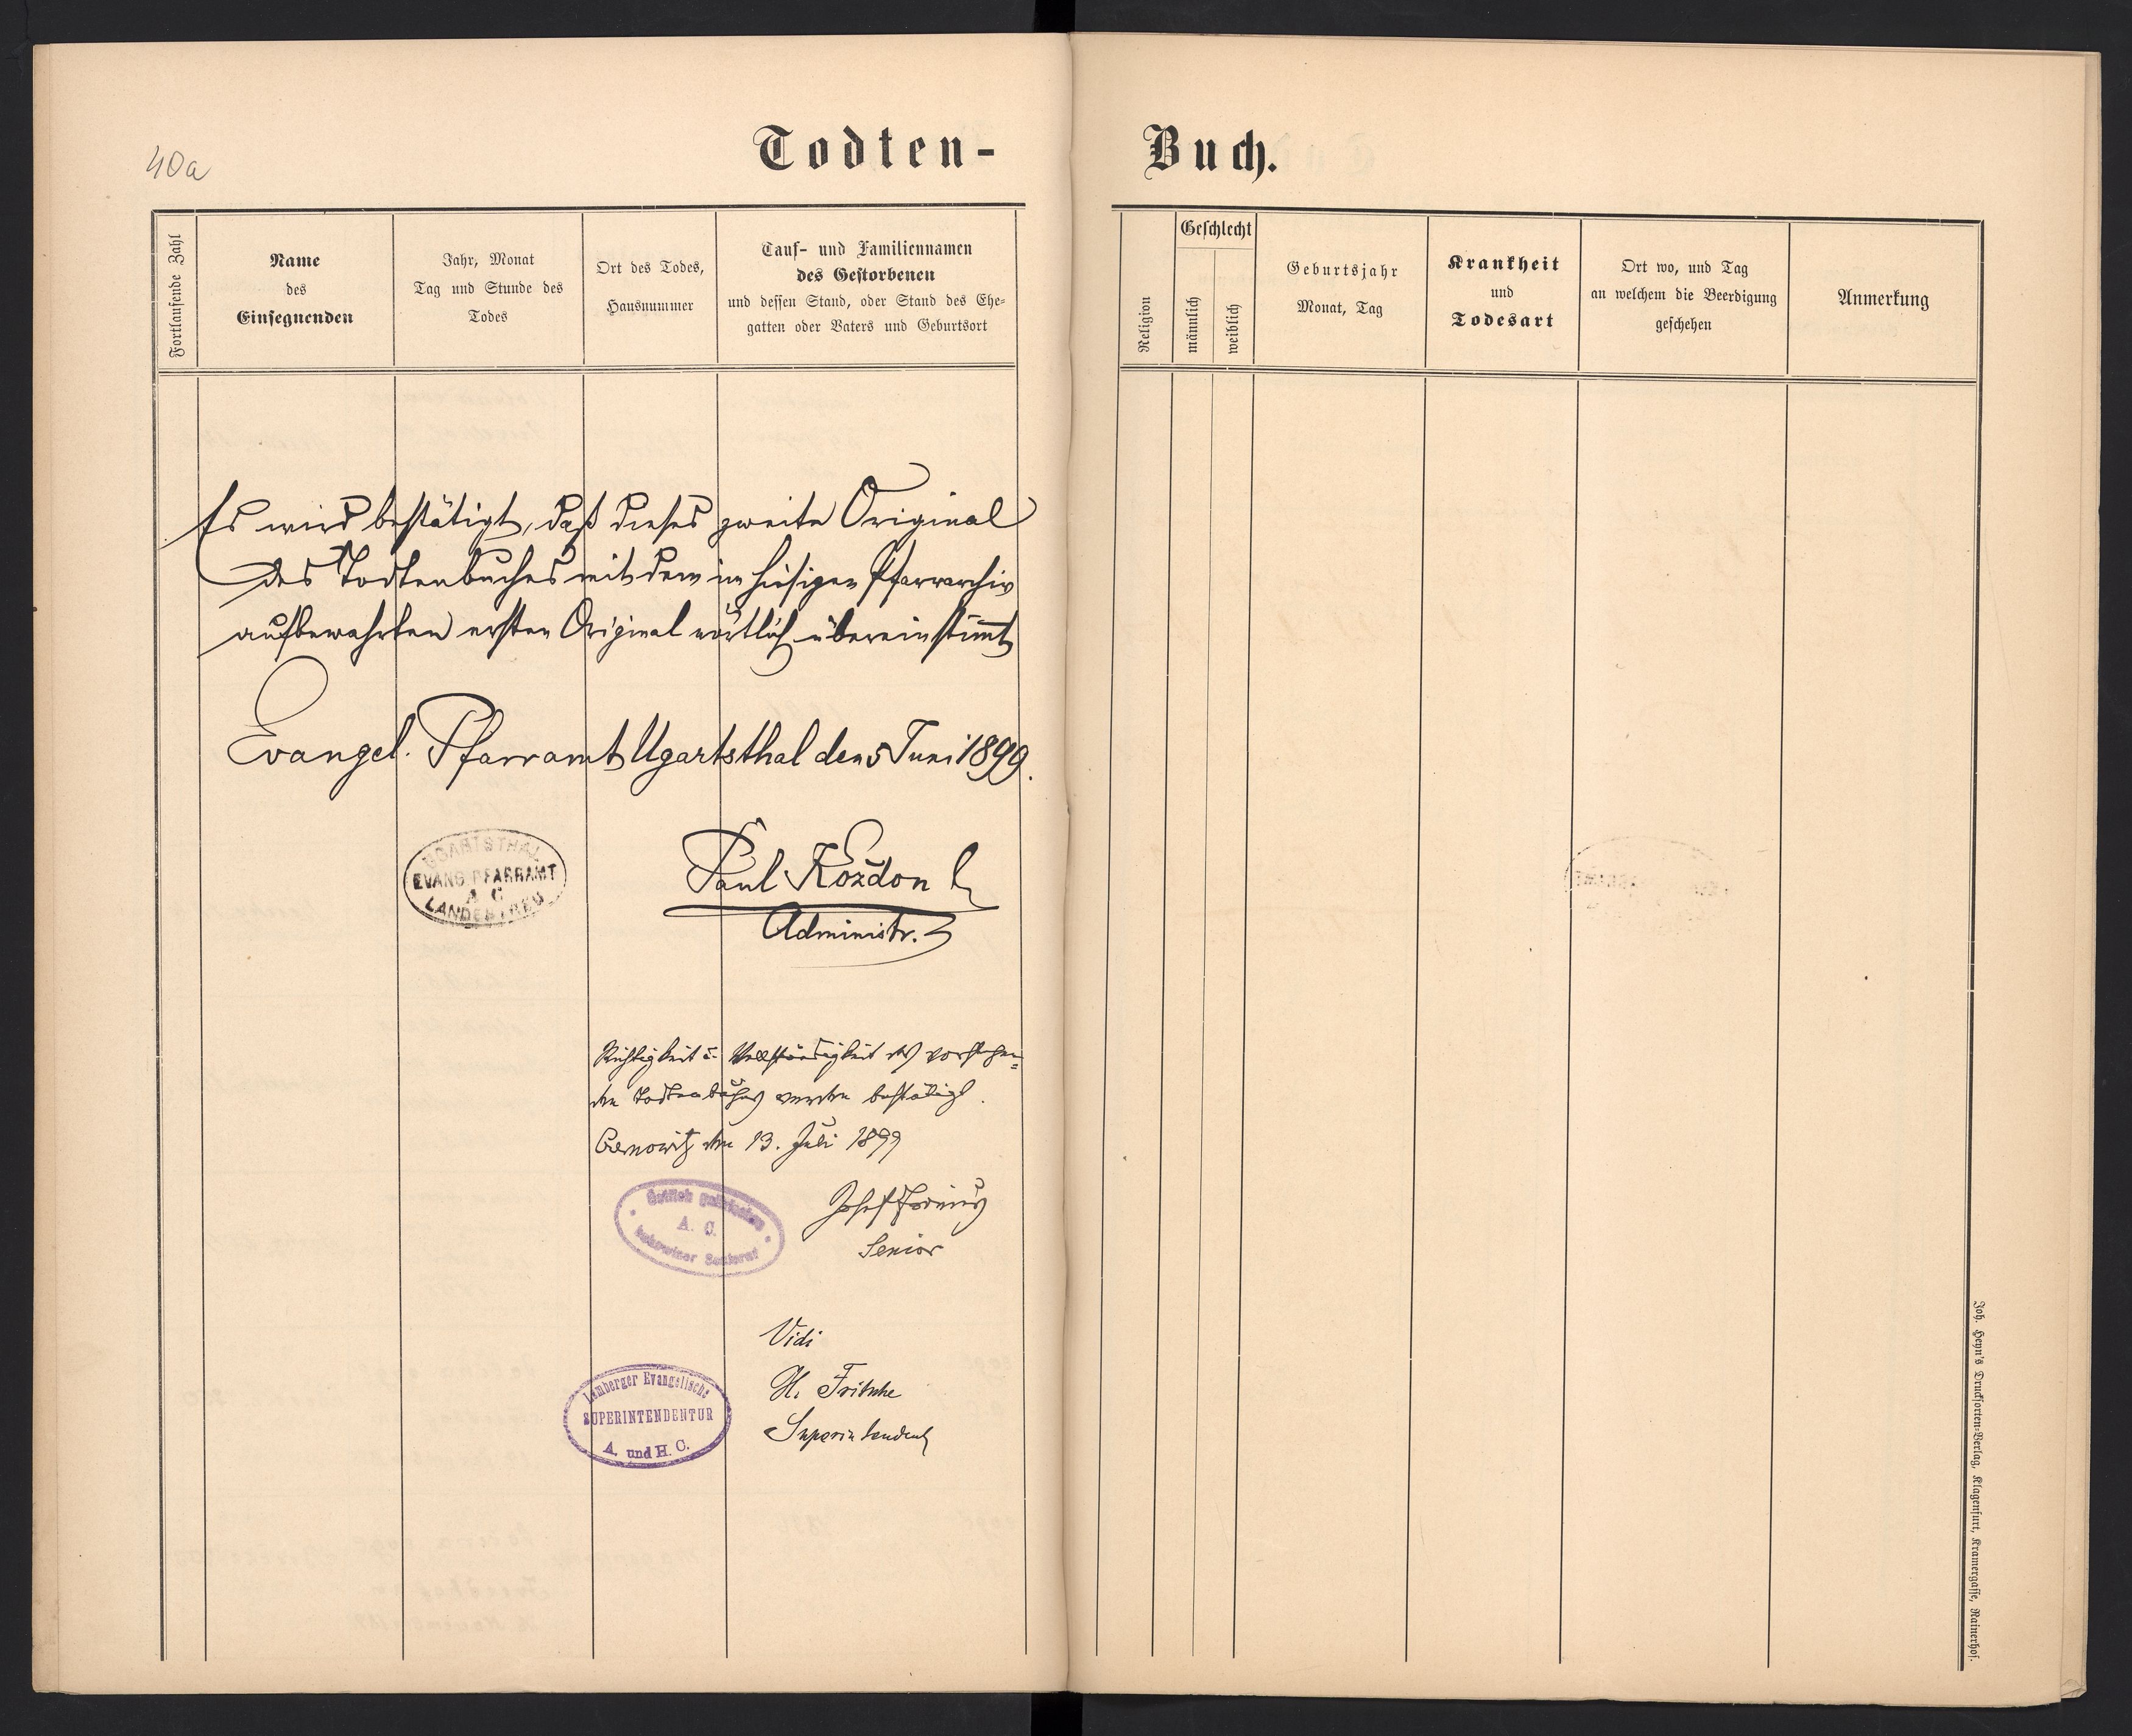 40a
Todten-
Fortlaufende Zahl
Name
des
Einsegnenden
Jahr, Monat
Tag und Stunde des
Todes
Ort des Todes,
Hausnummer
Tauf- und Familiennamen
des Gestorbenen
und dessen Stand, oder Stand des Ehe-
gatten oder Vaters und Geburtsort
Es wird bestätigt, daß dieses zweite Original
des Todtenbuches mit dem im hiesigen Pfarrarchiv
aufbewahrten ersten Original wörtlich übereinstimmt
Evangel. Pfarramt Ugartsthal den 5 Juni 1899.
UGARTSTHAL
EVANG PFARRAMT
A C
LANDESTREU
Paul Kozdon
Administr.
Richtigkeit u. Vollständigkeit des vorstehen=
den Todtenbuches werden bestätigt.
Czernowitz den 13. Juli 1899
A. C.
Bukowinaer Seniorat
Josef Fronius
Senior
Vidi
H. Fritsche
Superintendent
Lemberger Evangelische
SUPERINTENDENTUR
A. und H. C.
Buch.
Religion
Geschlecht
männlich
weiblich
Geburtsjahr
Monat, Tag
Krankheit
und
Todesart
Ort wo, und Tag
an welchem die Beerdigung
geschehen
Anmerkung
Joh. Heyn's Drucksorten-Verlag, Klagenfurt, Kramergasse, Rainerhof.